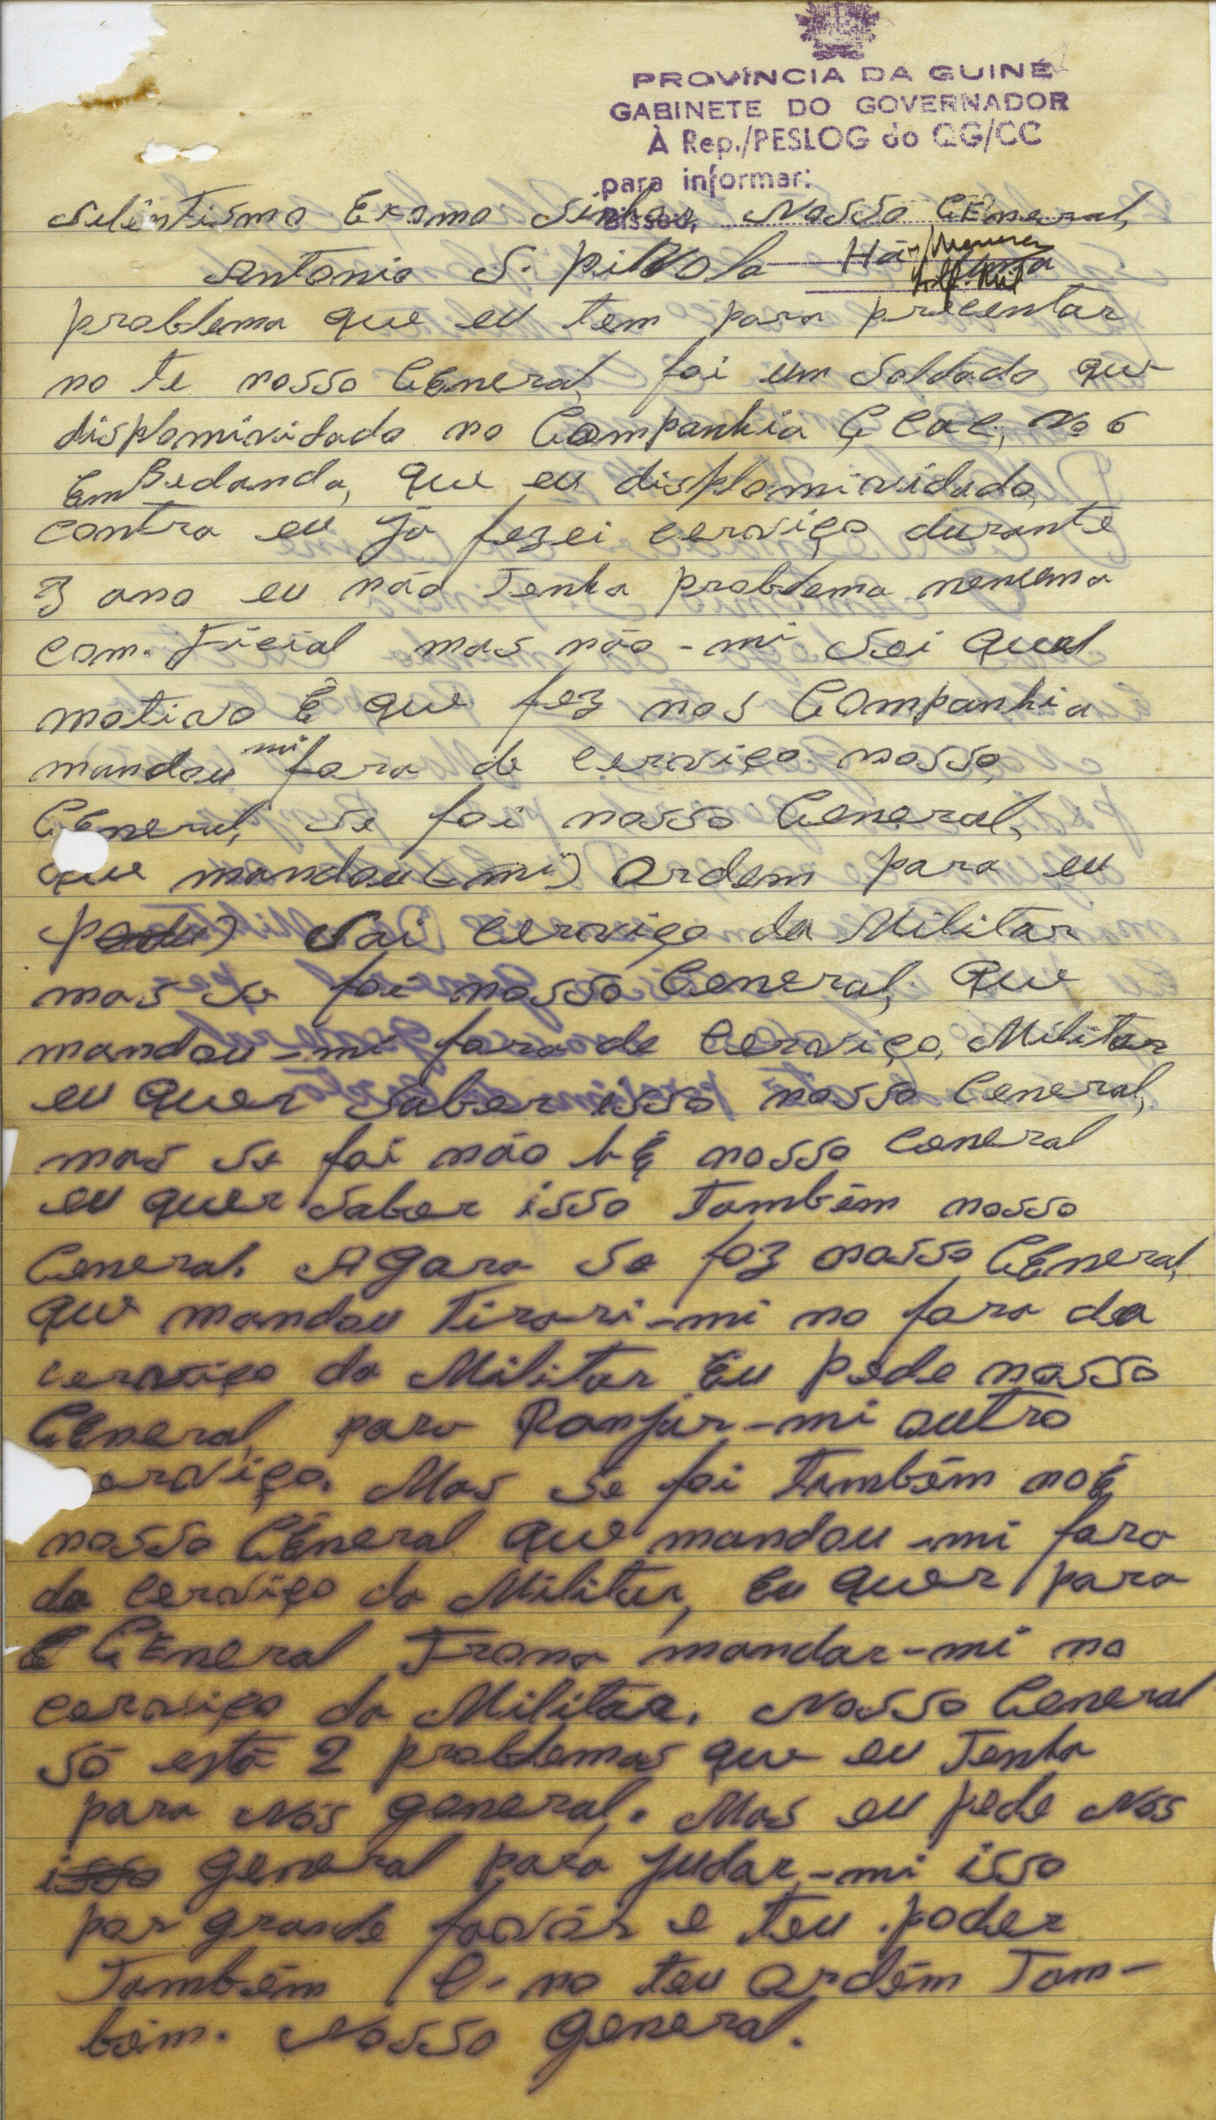 PROVÍNCIA DA GUINÉ
GABINETE DO GOVERNADOR
À Rep./PESLOG do QG/CC
para informar:
Bissau,
Selêntismo Exomo Sinhor, Nosso GEneral,
Antonio S. pinola Há
problema que eu tem para precentar
no te nosso GEneral, foi um Soldado que
displominidado no Companhia C Cac, No 6
Em Bedanda, que eu displominidado,
contra eu já fezei cerviço durante
3 ano eu não tenha problema nencema
com. Ficial mas não-mi Sei qual
motivo É que fez nos Companhia
mandou mi fora de cerviço nosso
GEneral, se foi nosso General,
que mandou (mi) Ordem para eu
(pode) Sai cerviço da Militar
mas se foi nosso General, que
mandou-mi fora de Cerviço, Militar
eu quer saber isso nosso General,
mas se foi não hÉ nosso General
eu quer saber isso também nosso
General. Agara se foz nosso GEneral,
que mandou tira-ri-mi no fora da
cerviço da Militar Eu pede nosso
GEneral, para Ranjar-mi outro
erviço. Mas se foi também noÉ
nosso GEneral que mandou-mi fora
da cerviço da Militar, Eu quer para
GEneral Trona mandar-mi no
cerviço da Militar. Nosso General
só está 2 problemas que eu Tenha
para Nós general,. Mas eu pede Nós
isso general para judar-mi isso
por grande favôr e teu poder
Também e- no teu ordém Tam-
bém. Nosso general.